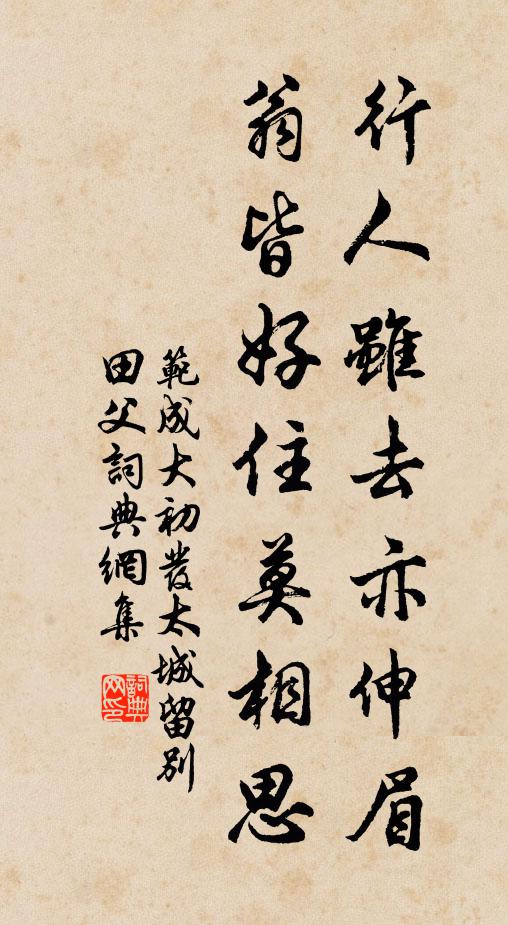 行人雖去亦伸眉
翁皆好住莫相思
範成大初發太城留別
田父詞典網集
詞典网印